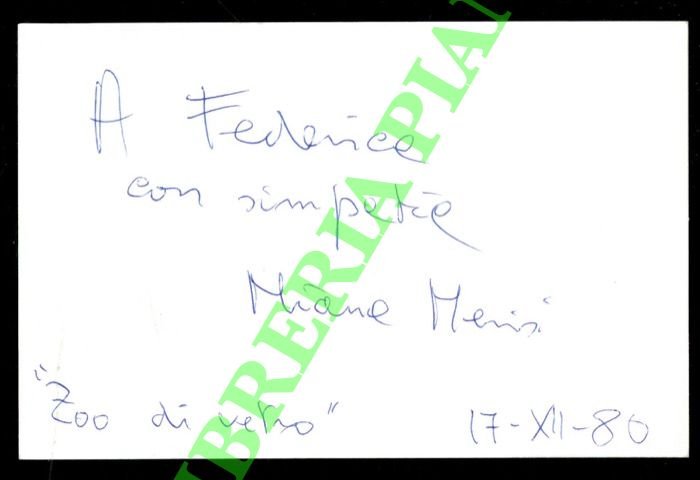 A Federica
con simpatia
Miana Merisi
"Zoo di vetro" 17-XII-80
LIBRERIA PIAN